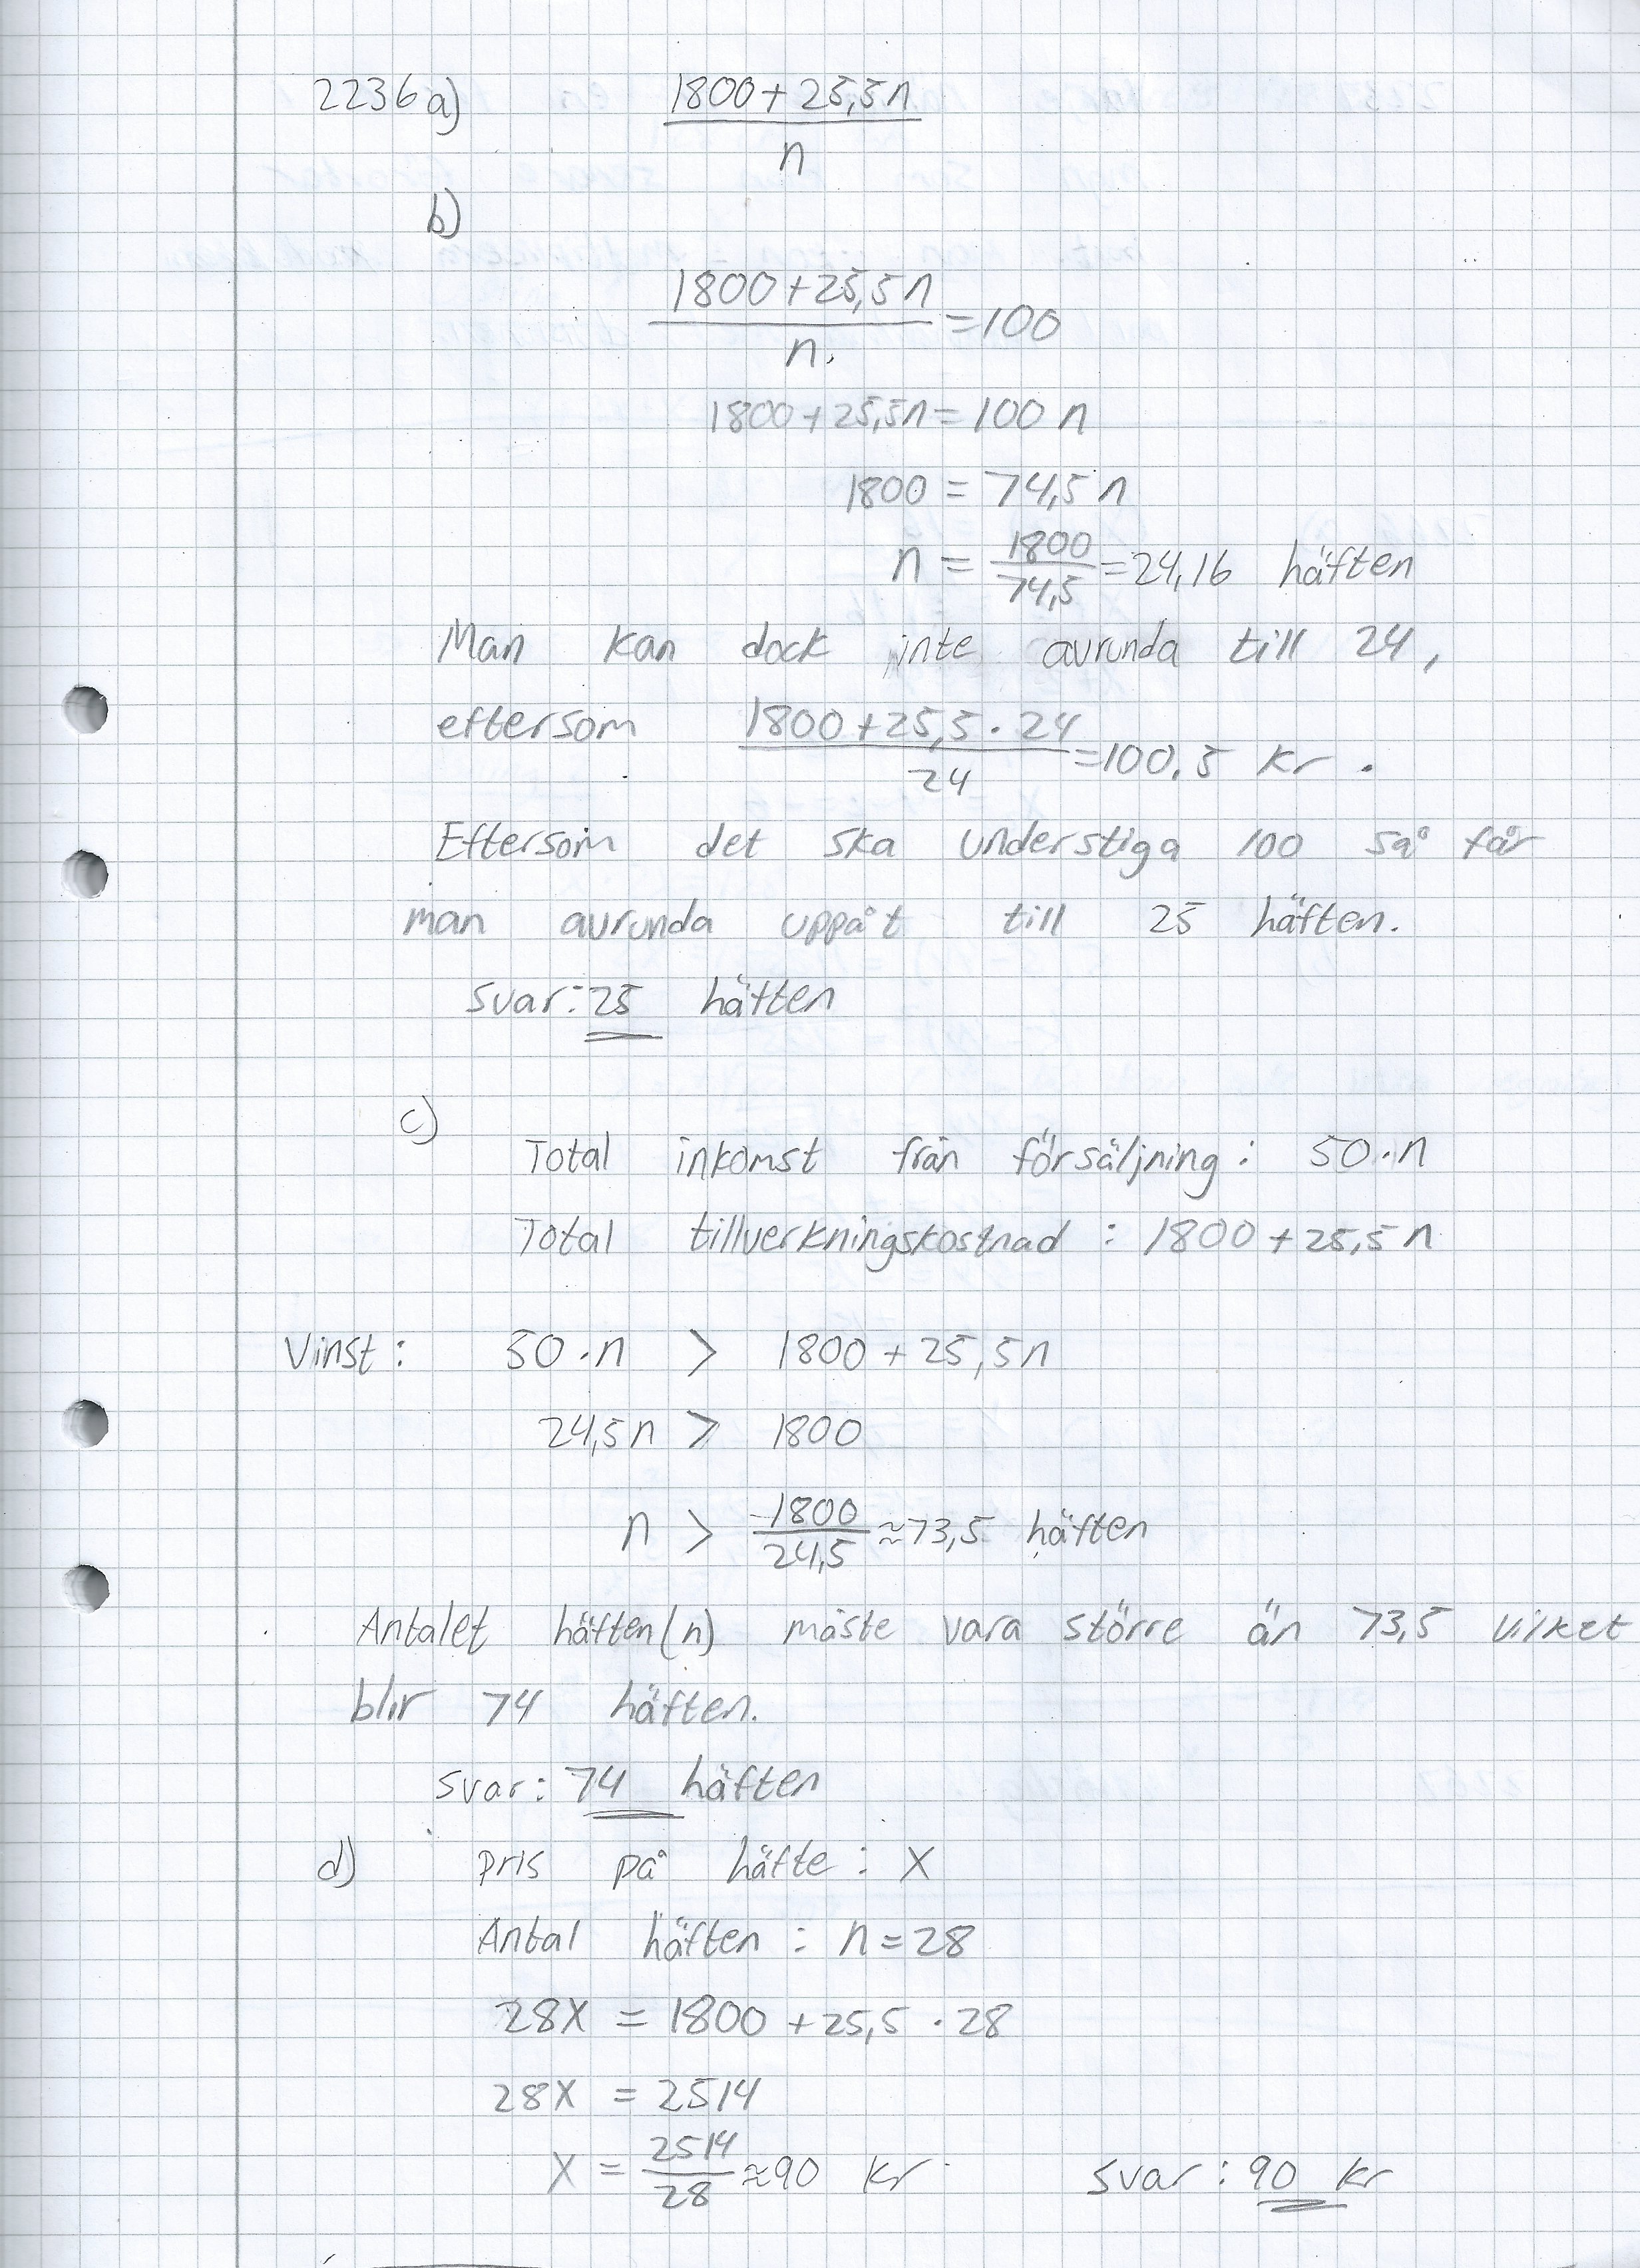 2236 a) (1800 + 25,5n)/n
b)
(1800 + 25,5n)/n = 100
1800 + 25,5n = 100 n
1800 = 74,5 n
n = 1800/74,5 = 24,16 häften
Man kan dock inte avrunda till 24,
eftersom (1800 + 25,5 · 24)/24 = 100,5 kr.
Eftersom det ska understiga 100 så får
man avrunda uppåt till 25 häften.
svar: 25 häften
c)
Total inkomst från försäljning: 50 · n
Total tillverkningskostnad: 1800 + 25,5 n
Vinst: 50 · n > 1800 + 25,5n
24,5n > 1800
n > 1800/24,5 ≈ 73,5 häften
Antalet häften(n) måste vara större än 73,5 vilket
blir 74 häften.
svar: 74 häften
d) pris på häfte: X
Antal häften: n = 28
28X = 1800 + 25,5 · 28
28X = 2514
X = 2514/28 ≈ 90 kr svar: 90 kr